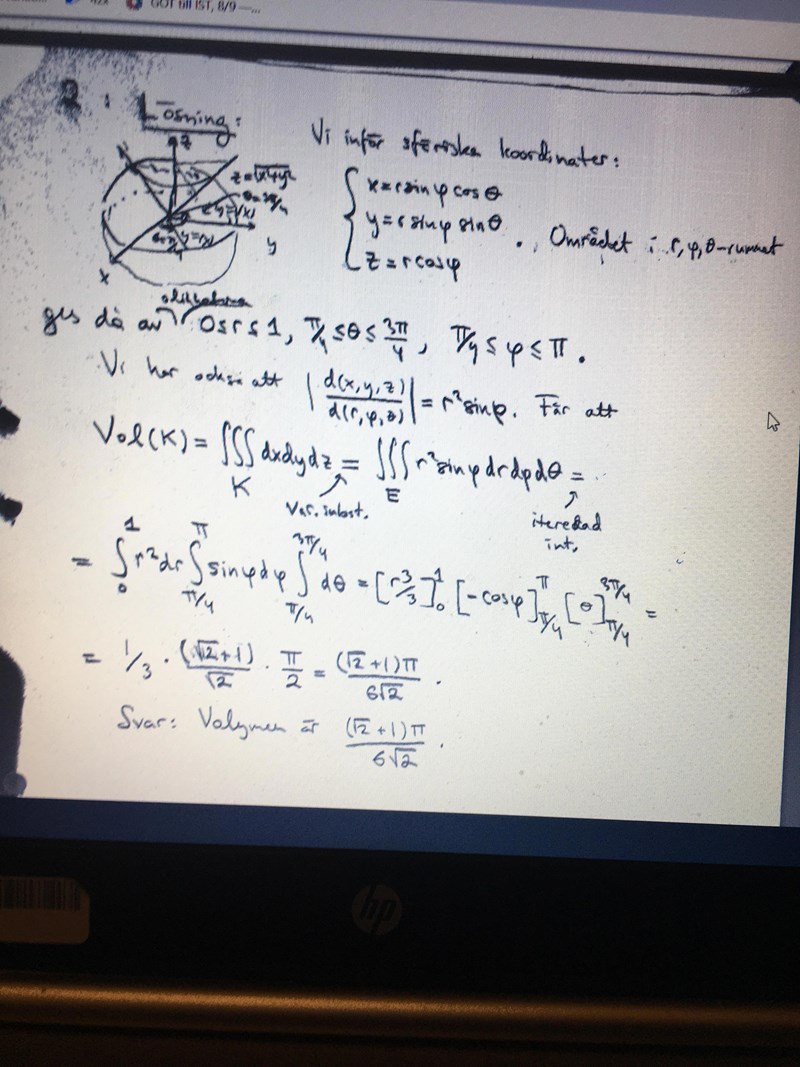 GOT till IST, 8/9 —...
2: Lösning:
z
z=√(x²+y²)
θ=3π/4
y=|x|
y
x
Vi inför sfäriska koordinater:
{ x=r sinφ cosθ
y=r sinφ sinθ
z=r cosφ
. Området i r,φ,θ-rummet
ges då av 0≤r≤1, π/4≤θ≤3π/4, π/4≤φ≤π.
Vi har också att |d(x,y,z)/d(r,φ,θ)| = r² sinφ. Får att
Vol(K) = ∭_K dxdydz = ∭_E r² sinφ dr dφ dθ =
Var. subst.
itererad
int.
= ∫₀¹ r² dr ∫_{π/4}^{π} sinφ dφ ∫_{π/4}^{3π/4} dθ = [r³/3]₀¹ [-cosφ]_{π/4}^{π} [θ]_{π/4}^{3π/4} =
= 1/3 · (√2+1)/√2 · π/2 = (√2+1)π/(6√2) .
Svar: Volymen är (√2+1)π/(6√2) .
hp